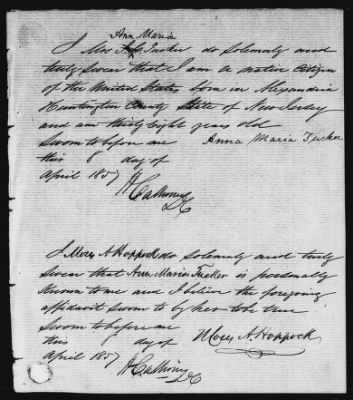 Ann Maria
I Mrs Tucker do solemnly and
truly swear that I am a native Citizen
of the United States born in Alexandria
Huntington County State of New Jersey
and am thirty eight years old
Sworn to before me Anna Maria Tucker
this 8 day of
April 1857
I Moses A Hoppock do solemnly and truly
swear that Ann Maria Tucker is personally
known to me and I believe the foregoing
affidavit sworn to by her to be true
Sworn to before me
this 8 day of Moses A. Hoppock
April 1857